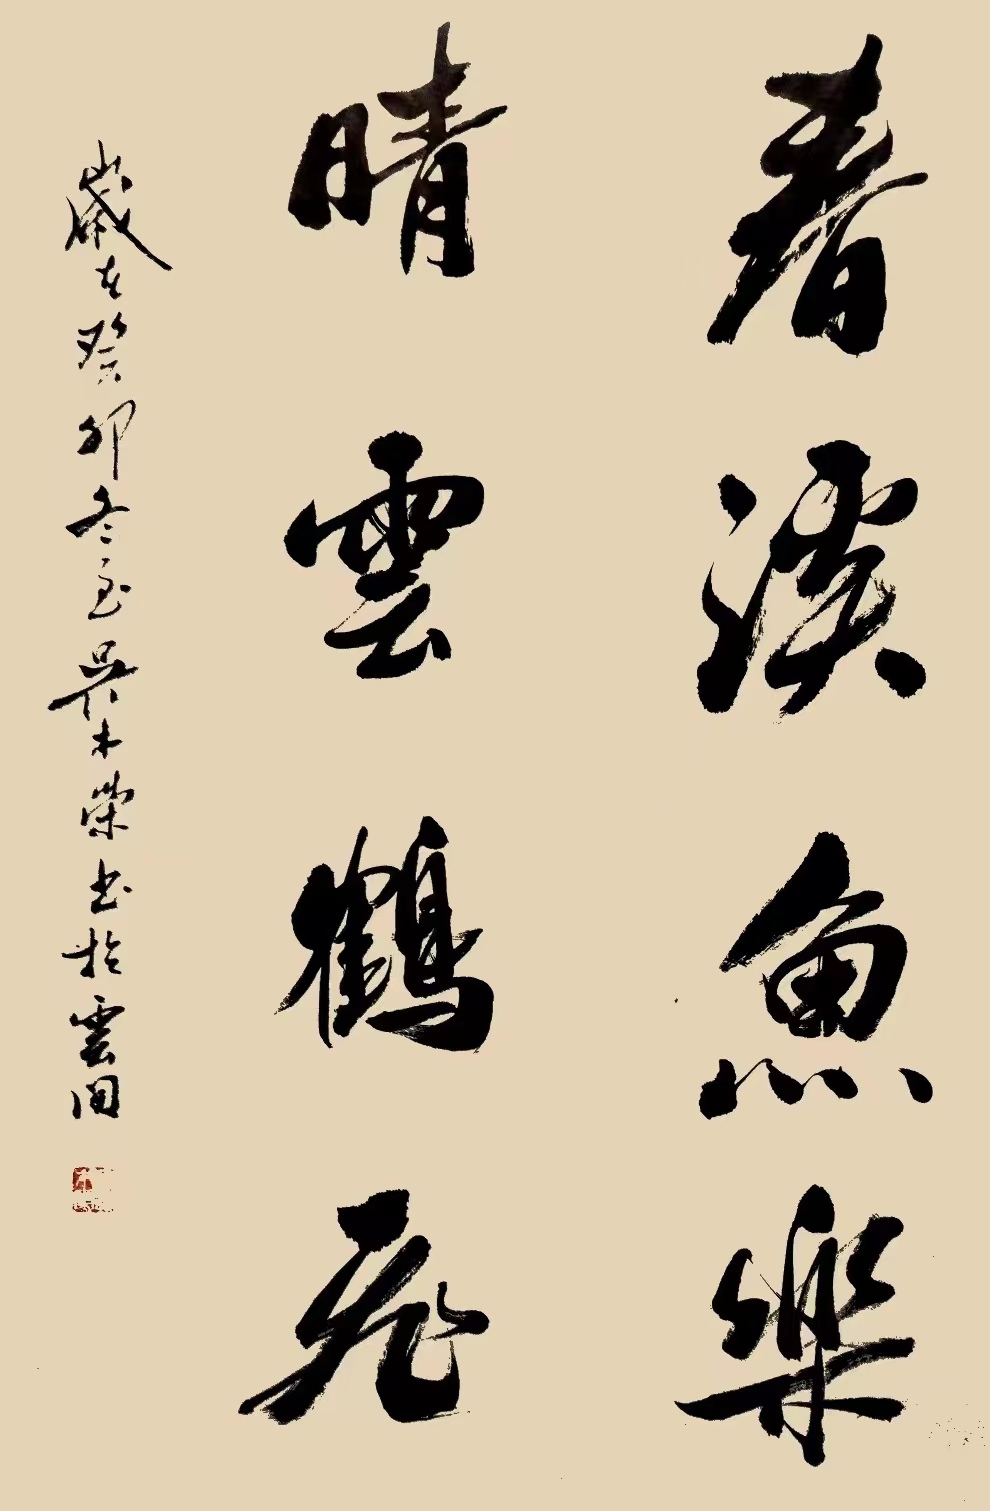 春溪魚樂
晴雲鶴飛
歲在癸卯冬至吳木榮书於雲间